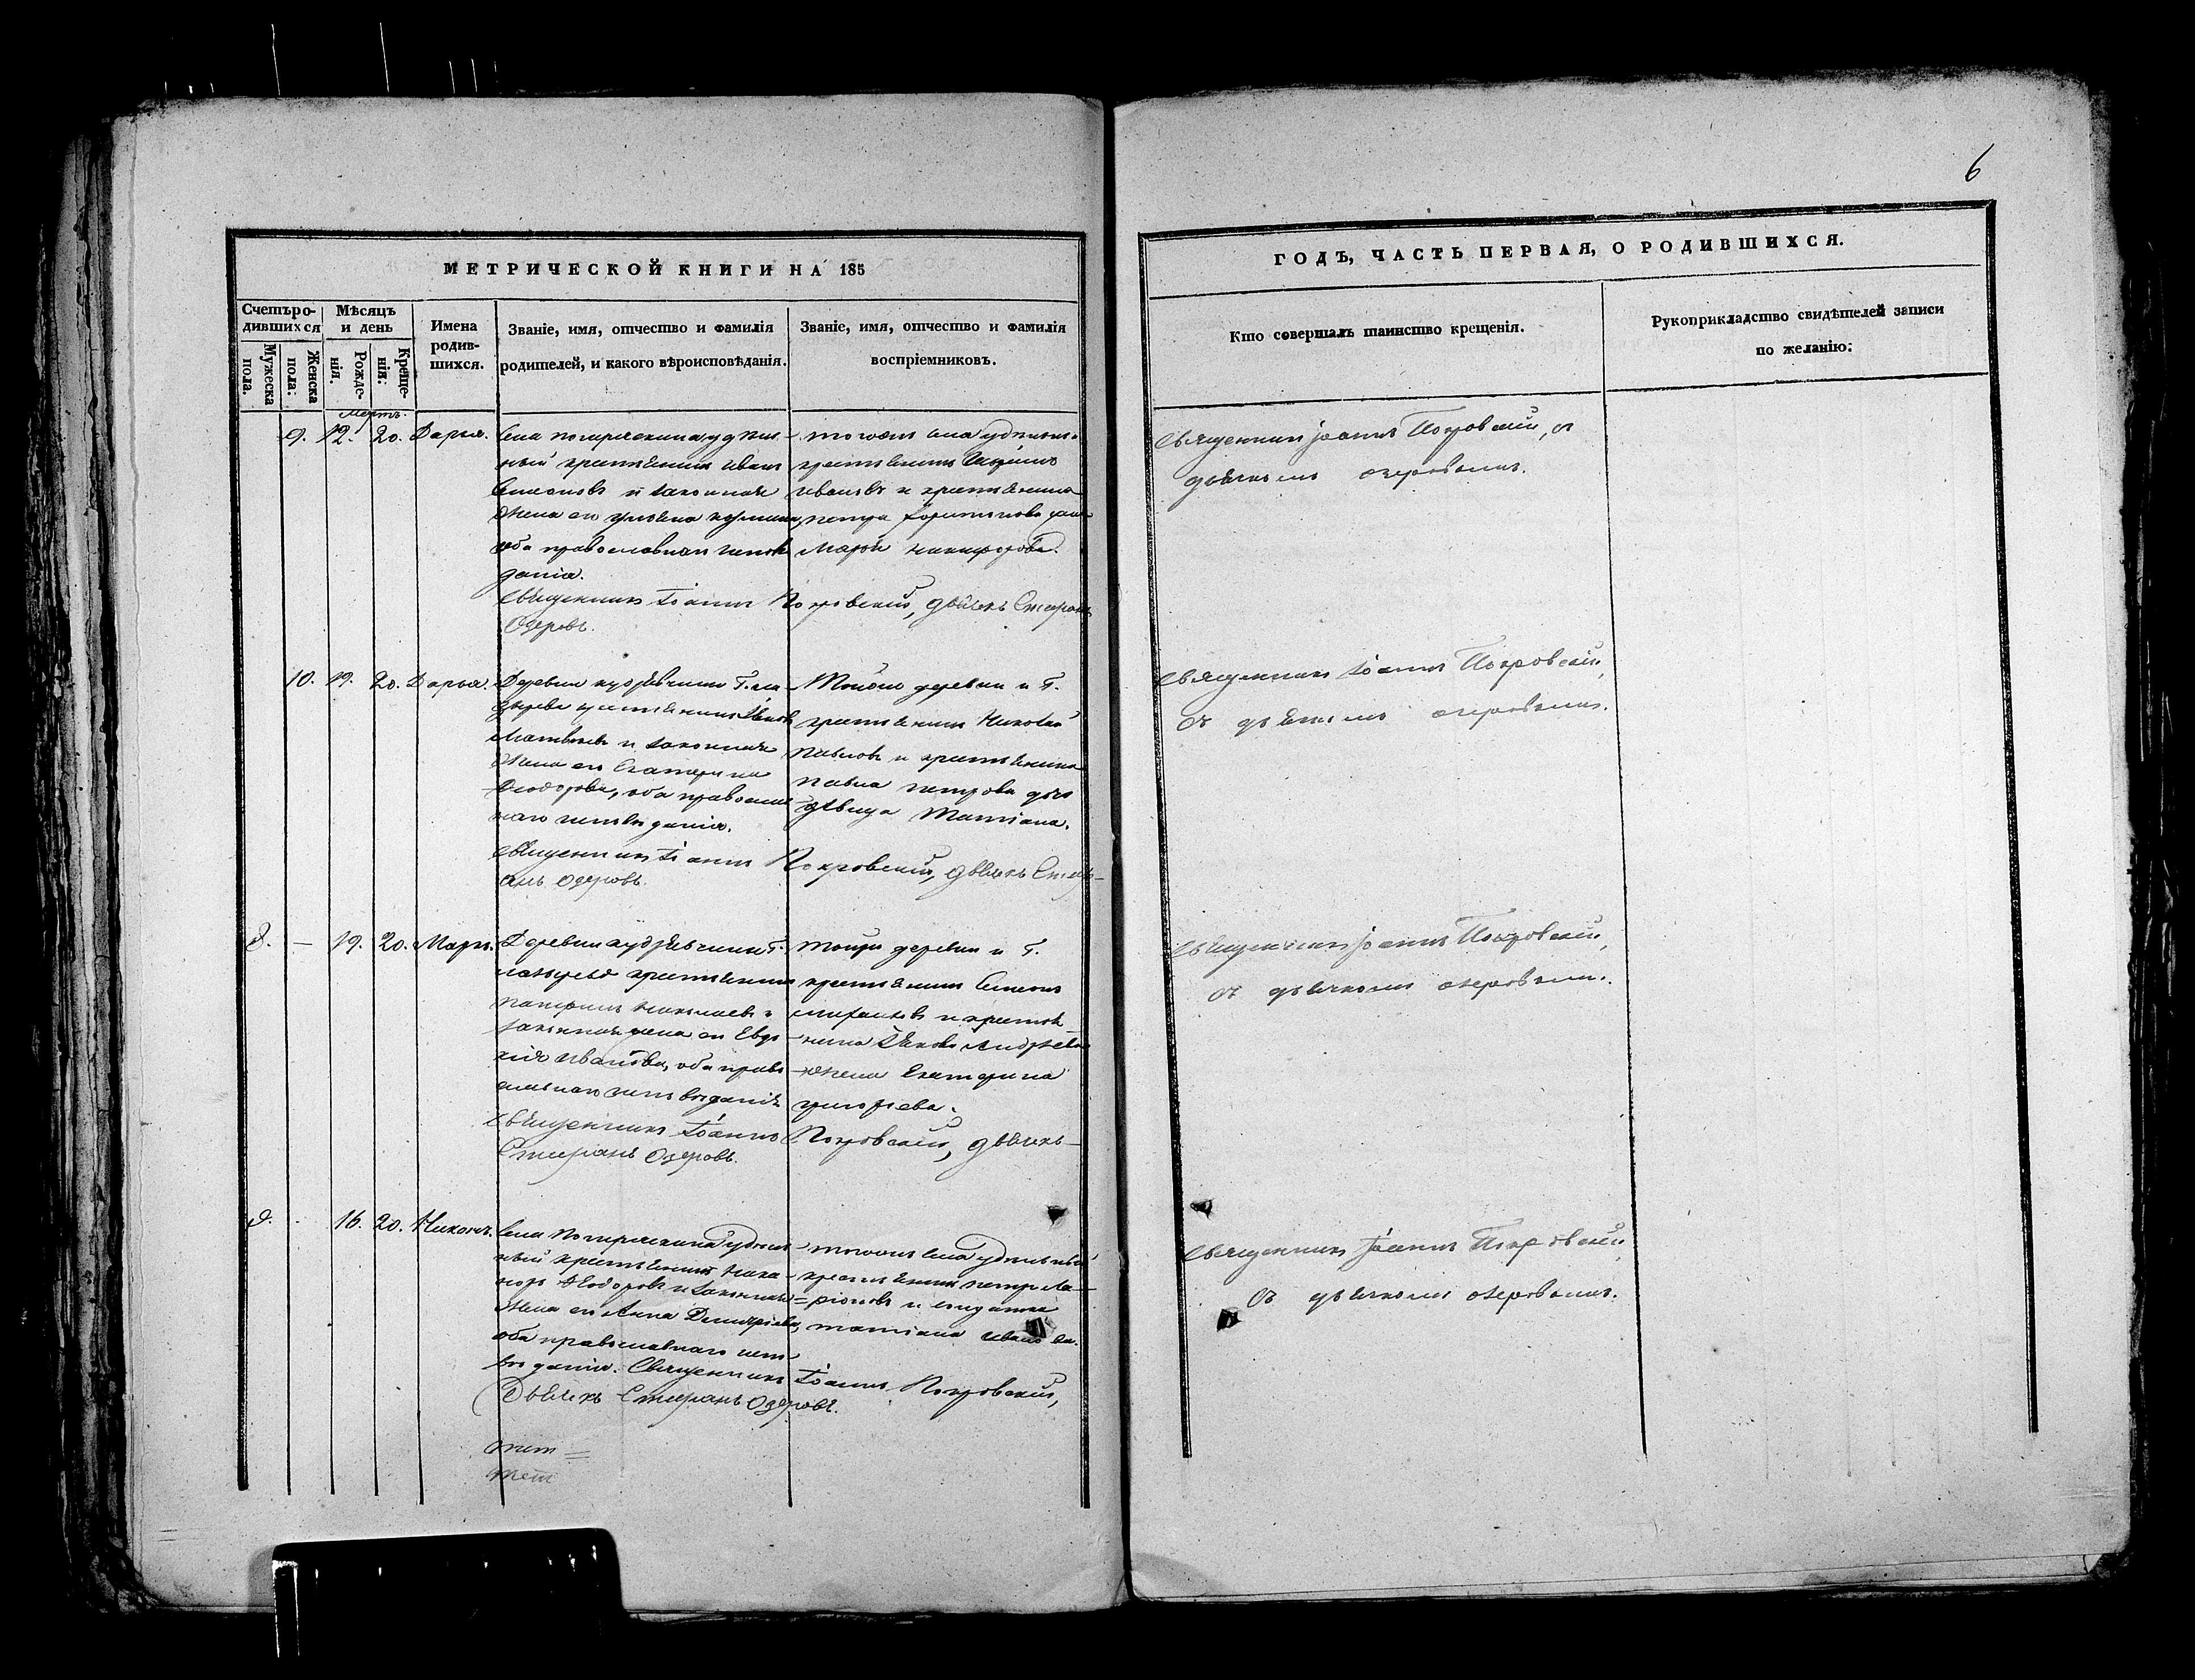 6
МЕТРИЧЕСКОЙ КНИГИ НА 185
ГОДЪ, ЧАСТЬ ПЕРВАЯ, О РОДИВШИХСЯ.
Счетъ ро-
дившихся
Мужеска пола.
Женска пола:
Мѣсяцъ
и день
Рожде-
нія.
Креще-
нія:
Имена
родив-
шихся.
Званіе, имя, отчество и фамилія
родителей, и какого вѣроисповѣданія.
Званіе, имя, отчество и фамилія
воспріемниковъ.
Кто совершалъ таинство крещенія.
Рукоприкладство свидѣтелей записи
по желанію:
Мартъ.
9. 12. 20. Дарья.
ный крестьянинъ Иванъ
и законная
жена его
оба православнаго исповѣ
данія.
Священникъ Іоаннъ Покровскій, дьячекъ Стефанъ
Озеровъ.
тогоже села удѣльный
крестьянинъ
Ивановъ и крестьянина
Петра
Марѳа Никифорова.
Священникъ Іоаннъ Покровскій, съ
дьячкомъ Озеровымъ.
10. 19. 20. Дарья.
Деревни
крестьянинъ Яковъ
Матвѣевъ и законная
жена его Екатерина
Ѳеодорова, оба православ
наго исповѣданія.
Священникъ Іоаннъ Покровскій, дьячекъ Стеф-
анъ Озеровъ.
Тойже деревни и Г.
крестьянинъ Николай
Павловъ и крестьянина
Павла Петрова дочь
дѣвица Татіана.
Священникъ Іоаннъ Покровскій,
съ дьячкомъ Озеровымъ.
8. — 19. 20. Маркъ.
Деревни
крестьянинъ
Николаевъ и
законная жена его Евдо
кія Иванова, оба право
славнаго исповѣданія
Священникъ Іоаннъ Покровскій, дьячекъ
Стефанъ Озеровъ.
тойже деревни и Г.
крестьянинъ Симеонъ
и крестья-
нина Якова Андреева
жена Екатерина
Григорьева.
Священникъ Іоаннъ Покровскій,
съ дьячкомъ Озеровымъ.
9. 16. 20. Никонъ.
ный крестьянинъ Ника-
норъ Ѳеодоровъ и законная
жена его Анна Димитріева,
оба православнаго испо
вѣданія. Священникъ Іоаннъ Покровскій,
Дьячекъ Стефанъ Озеровъ.
тогоже села удѣльный
крестьянинъ Петръ Ла-
ріоновъ и солдатка
Татіана Иванова.
Священникъ Іоаннъ Покровскій,
съ дьячкомъ Озеровымъ.